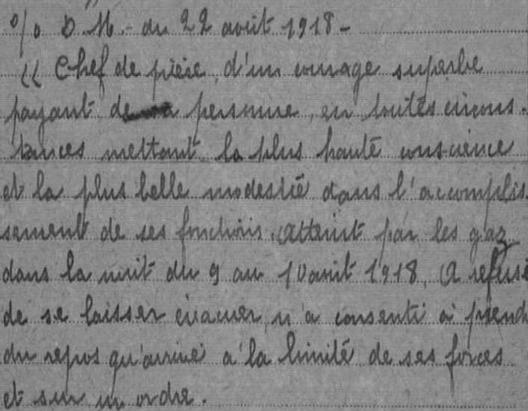 % D. M. du 22 août 1918 -
"Chef de pièce, d'un courage superbe
payant de sa personne, en toutes circons-
tances mettant la plus haute conscience
et la plus belle modestie dans l'accomplis
sement de ses fonctions. Atteint par les gaz
dans la nuit du 9 au 10 août 1918, A refusé
de se laisser évacuer, n'a consenti à prend
du repos qu'arrivé à la limite de ses forces
et sur un ordre.